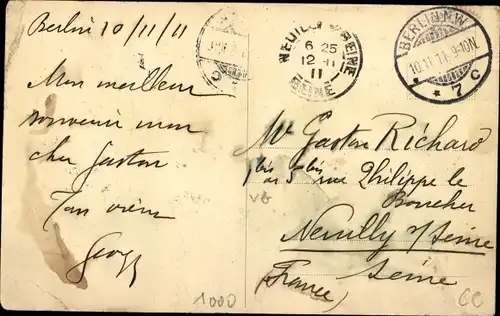 Berlin 10/11/11
Mon meilleur
souvenir mon
cher Gaston
Ton vieux
Georg
NEUILLY S/SEINE
6 25
12 - 11
11
SEINE
BERLIN N.W.
10.11.11. 9-10N.
* 7 c
Mr Gaston Richard
1 bis ou 5 bis rue Philippe le
Boucher
Neuilly s/Seine
Seine
(France)
1000